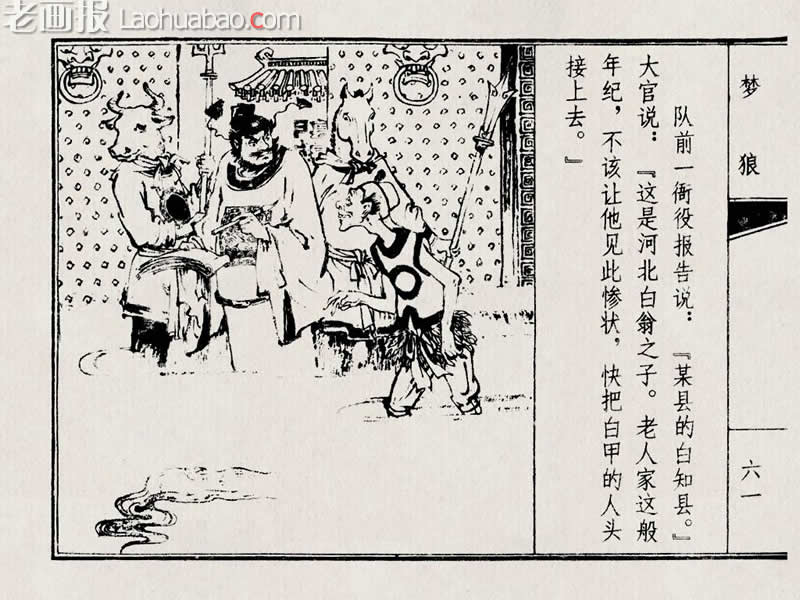 老画报 Laohuabao.com
梦狼
队前一衙役报告说：『某县的白知县。』
大官说：『这是河北白翁之子。老人家这般
年纪，不该让他见此惨状，快把白甲的人头
接上去。』
六一